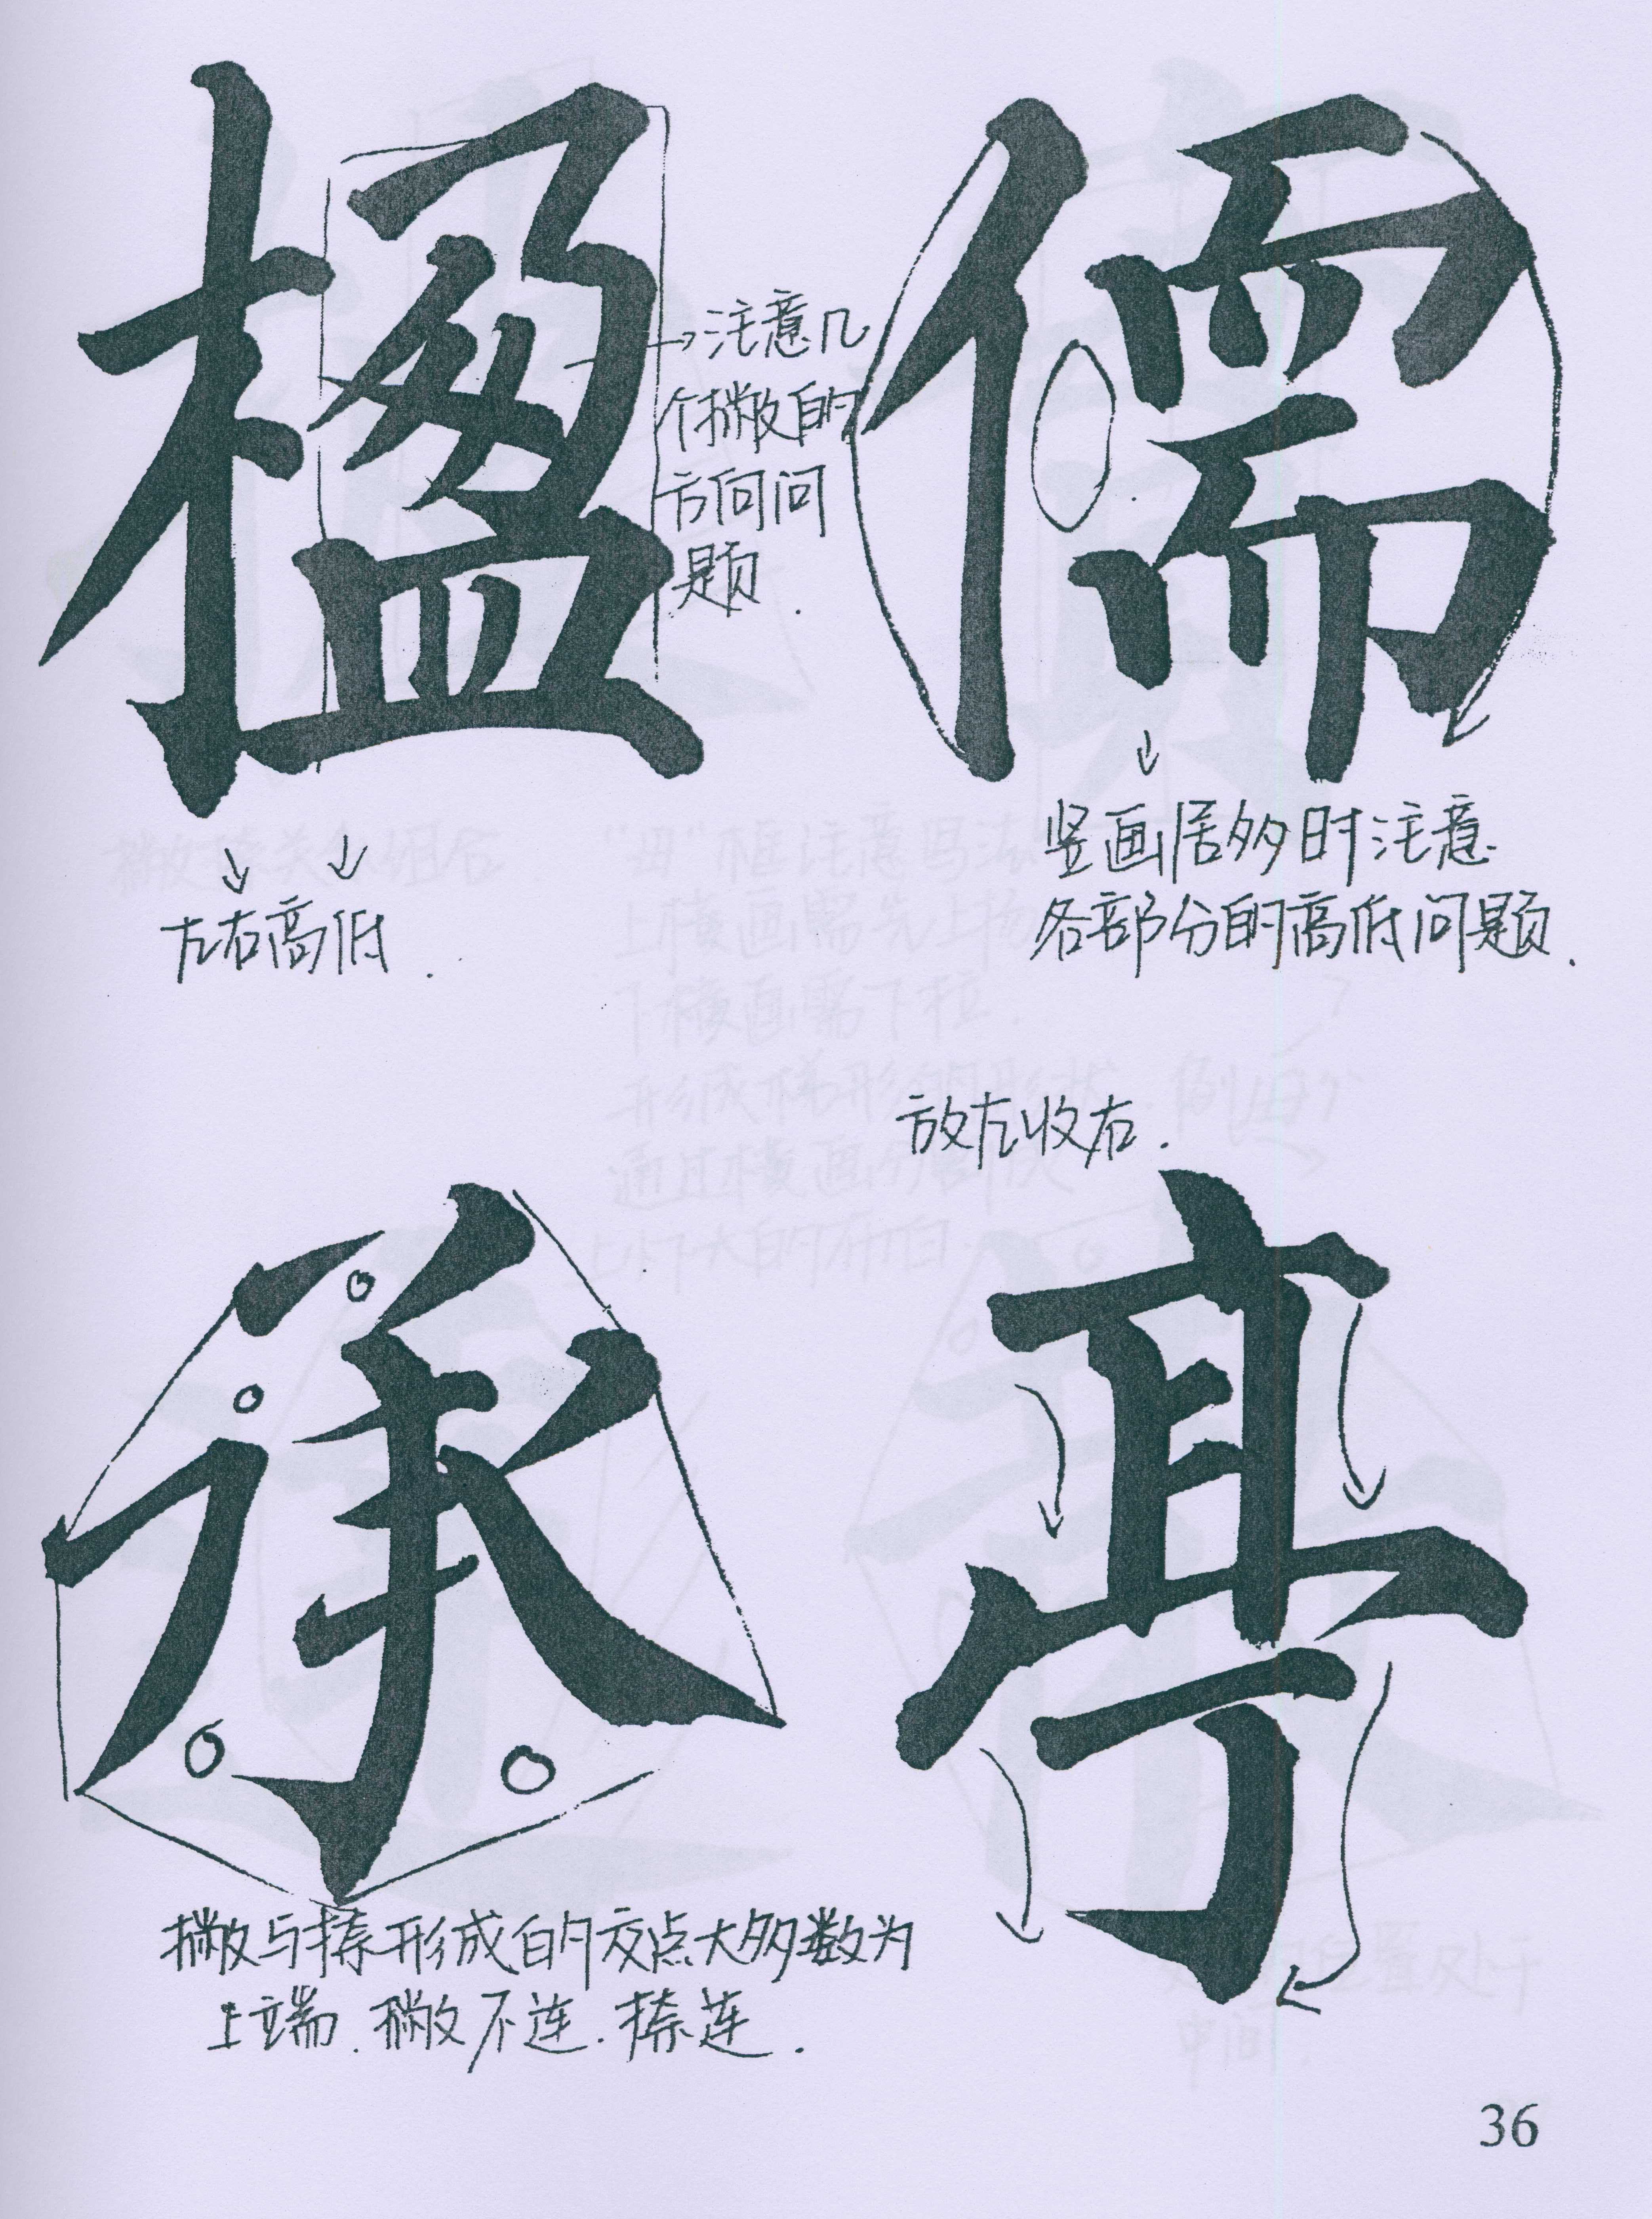 楹
儒
→注意几
个撇的
方向问
题.
左右高低.
竖画居多时注意
各部分的高低问题.
放左收右.
承
亭
撇与捺形成的交点大多数为
上端.撇不连.捺连.
36